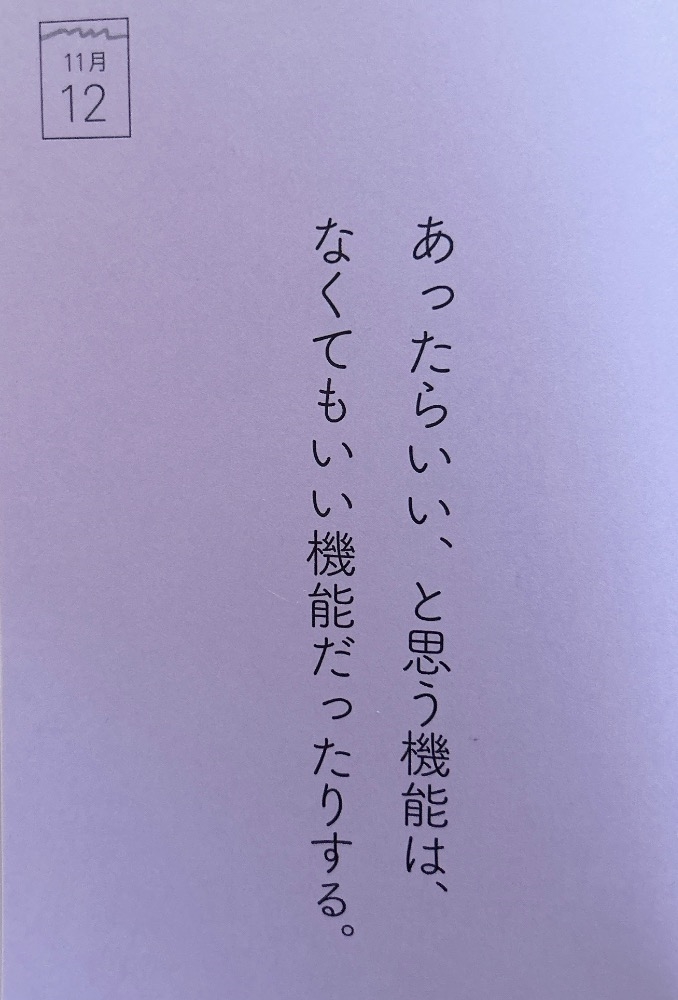 11月
12
あったらいい、と思う機能は、
なくてもいい機能だったりする。